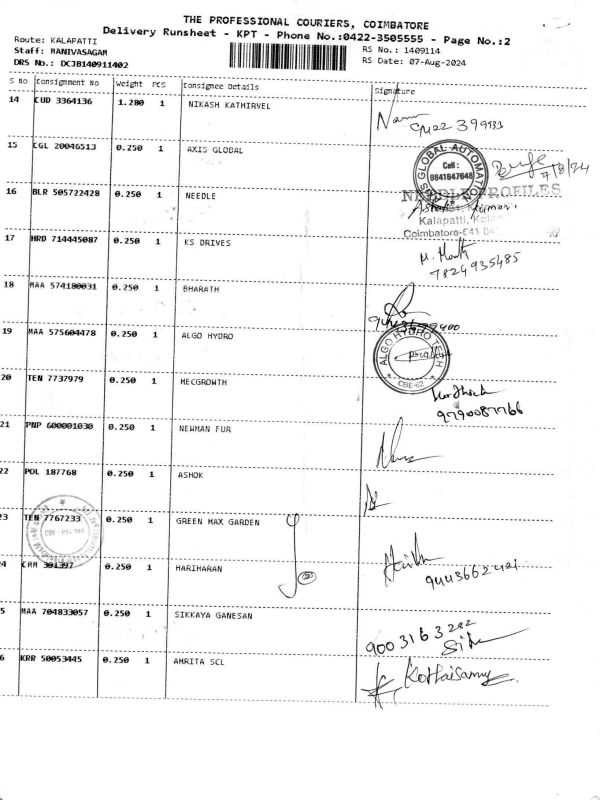 THE PROFESSIONAL COURIERS, COIMBATORE
Delivery Runsheet - KPT - Phone No.:0422-3505555 - Page No.:2
Route: KALAPATTI
Staff: MANIVASAGAM
DRS No.: DCJB140911402
RS No.: 1409114
RS Date: 07-Aug-2024
S No Consignment No Weight PCS Consignee Details Signature
14 CUD 3364136 1.280 1 NIKASH KATHIRVEL
15 CGL 20046513 0.250 1 AXIS GLOBAL
GLOBAL AUTOMATION
Cell :
9841647648
7/8/24
16 BLR 505722428 0.250 1 NEEDLE
NEEDLE PROFILES
Kalapatti,
Coimbatore-641
17 HRD 714445087 0.250 1 KS DRIVES
7824935485
18 MAA 574180031 0.250 1 BHARATH
19 MAA 575604478 0.250 1 ALGO HYDRO
ALGO HYDRO TECH
CBE-62
20 TEN 7737979 0.250 1 MECGROWTH
9790087766
21 PNP 600001030 0.250 1 NEWMAN FUR
22 POL 187768 0.250 1 ASHOK
23 TEN 7767233 0.250 1 GREEN MAX GARDEN
24 CMM 301397 0.250 1 HARIHARAN
5 MAA 704833057 0.250 1 SIKKAYA GANESAN
9003163282
6 KRR 50053445 0.250 1 AMRITA SCL
Kothaisamy